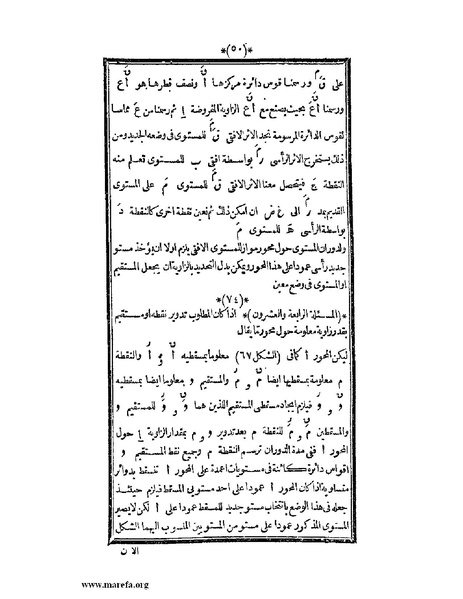 *(٥٠)*
على ق ورسمنا قوس دائرة مركزها أ ونصف قطرها هو أع
ورسمنا أع بحيث يصنع مع أع الزاوية المفروضة أ ثم رسمنا من ع مماسا
لقوس الدائرة المرسومة نجد الاثر الافقى ق للمستوى فى وضعه الجديد ومن
ذلك يستخرج الاثر الرأسى ر بواسطة افقى ب للمستوى تعلم منه
النقطة ع فيتحصل معنا الاثر الافقى ق للمستوى م على المستوى
القديم بمد ر الى غ ض ان امكن ذلك ثم نعين نقطة اخرى كالنقطة د
بواسطة الرأسى ھ للمستوى م
ولدوران المستوى حول محور مواز للمستوى الافقى يلزم اولا ان يؤخذ مستو
جديد رأسى عمودا على هذا المحور ويمكن بدل التحديد بالزاوية ان يجعل المستقيم
او المستوى فى وضع معين
*(٧٤)*
*(المسئلة الرابعة والعشرون)* اذا كان المطلوب تدوير نقطة او مستقيم
بقدر زاوية معلومة حول محور تما يقال
ليكن المحور أ كما فى (الشكل ٦٧) معلوما بمسقطيه أ و أ والنقطة
م معلومة بمسقطيها ايضا م و م والمستقيم و معلوما ايضا بمسقطيه
و و و فيلزم ايجاد مسقطى المستقيم اللذين هما و و و للمستقيم و
والمسقطين م و م للنقطة م بعد تدوير و و م بمقدار الزاوية أ حول
المحور أ ففى مدة الدوران ترسم النقطة م وجميع نقط المستقيم و
اقواس دائرة كائنة فى مستويات اعمدة على المحور أ تنسقط بدوائر
متساوية اذا كان المحور أ عمودا على احد مستويى المسقط فيلزم حينئذ
جعله فى هذا الوضع بانتخاب مستو جديد للمسقط عمودا على أ لكن لا يصير
المستوى المذكور عمودا على مستو من المستويين المنسوب اليهما الشكل
الان
www.marefa.org